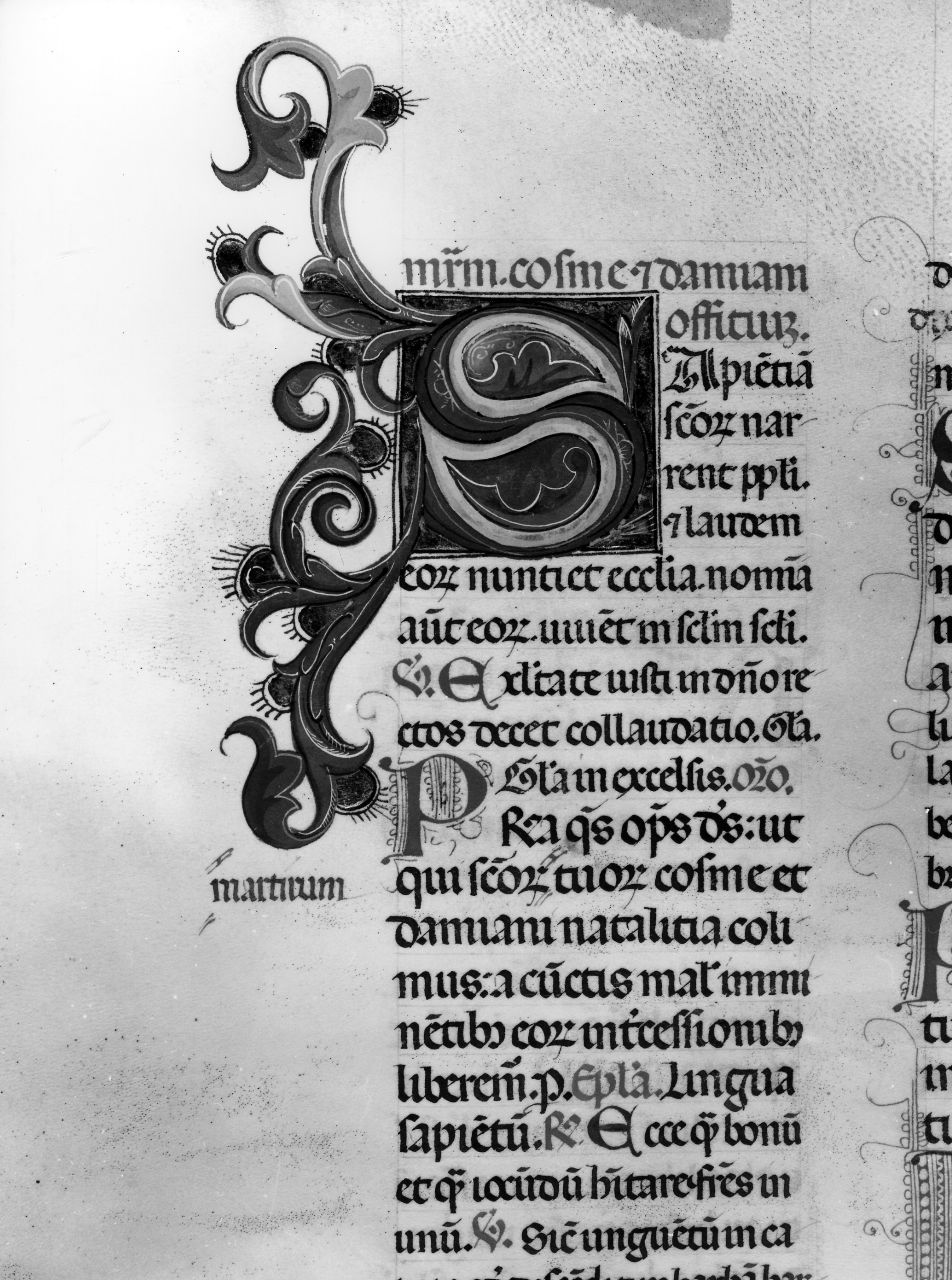 mr̄m. cosme ⁊ damiani
officiuꝫ.
SApiētiā
scōꝝ nar
rent ppli.
⁊ laudem
eoꝝ nuntiet ecclia. nomīa
aūt eoꝝ. uiuēt in sclm scli.
℣. Exl̄tate iusti in dn̄o re
ctos decet collaudatio. Gl̄a.
Gl̄a in excelsis. or̄o.
PRea q̄s op̄s d̄s: ut
qui scōꝝ tuoꝝ cosme et
damiani natalitia coli
mus: a cūctis mal̓ immi
nētibꝫ eoꝝ int̓cessionibꝫ
liberem̄. p. Epl̄a. Lingua
sapiētū. ℟ Ecce q̄ bonū
et q̄ iocūdū hītare fr̄es in
unū. ℣. Sic̄ unguētū in ca
martirum